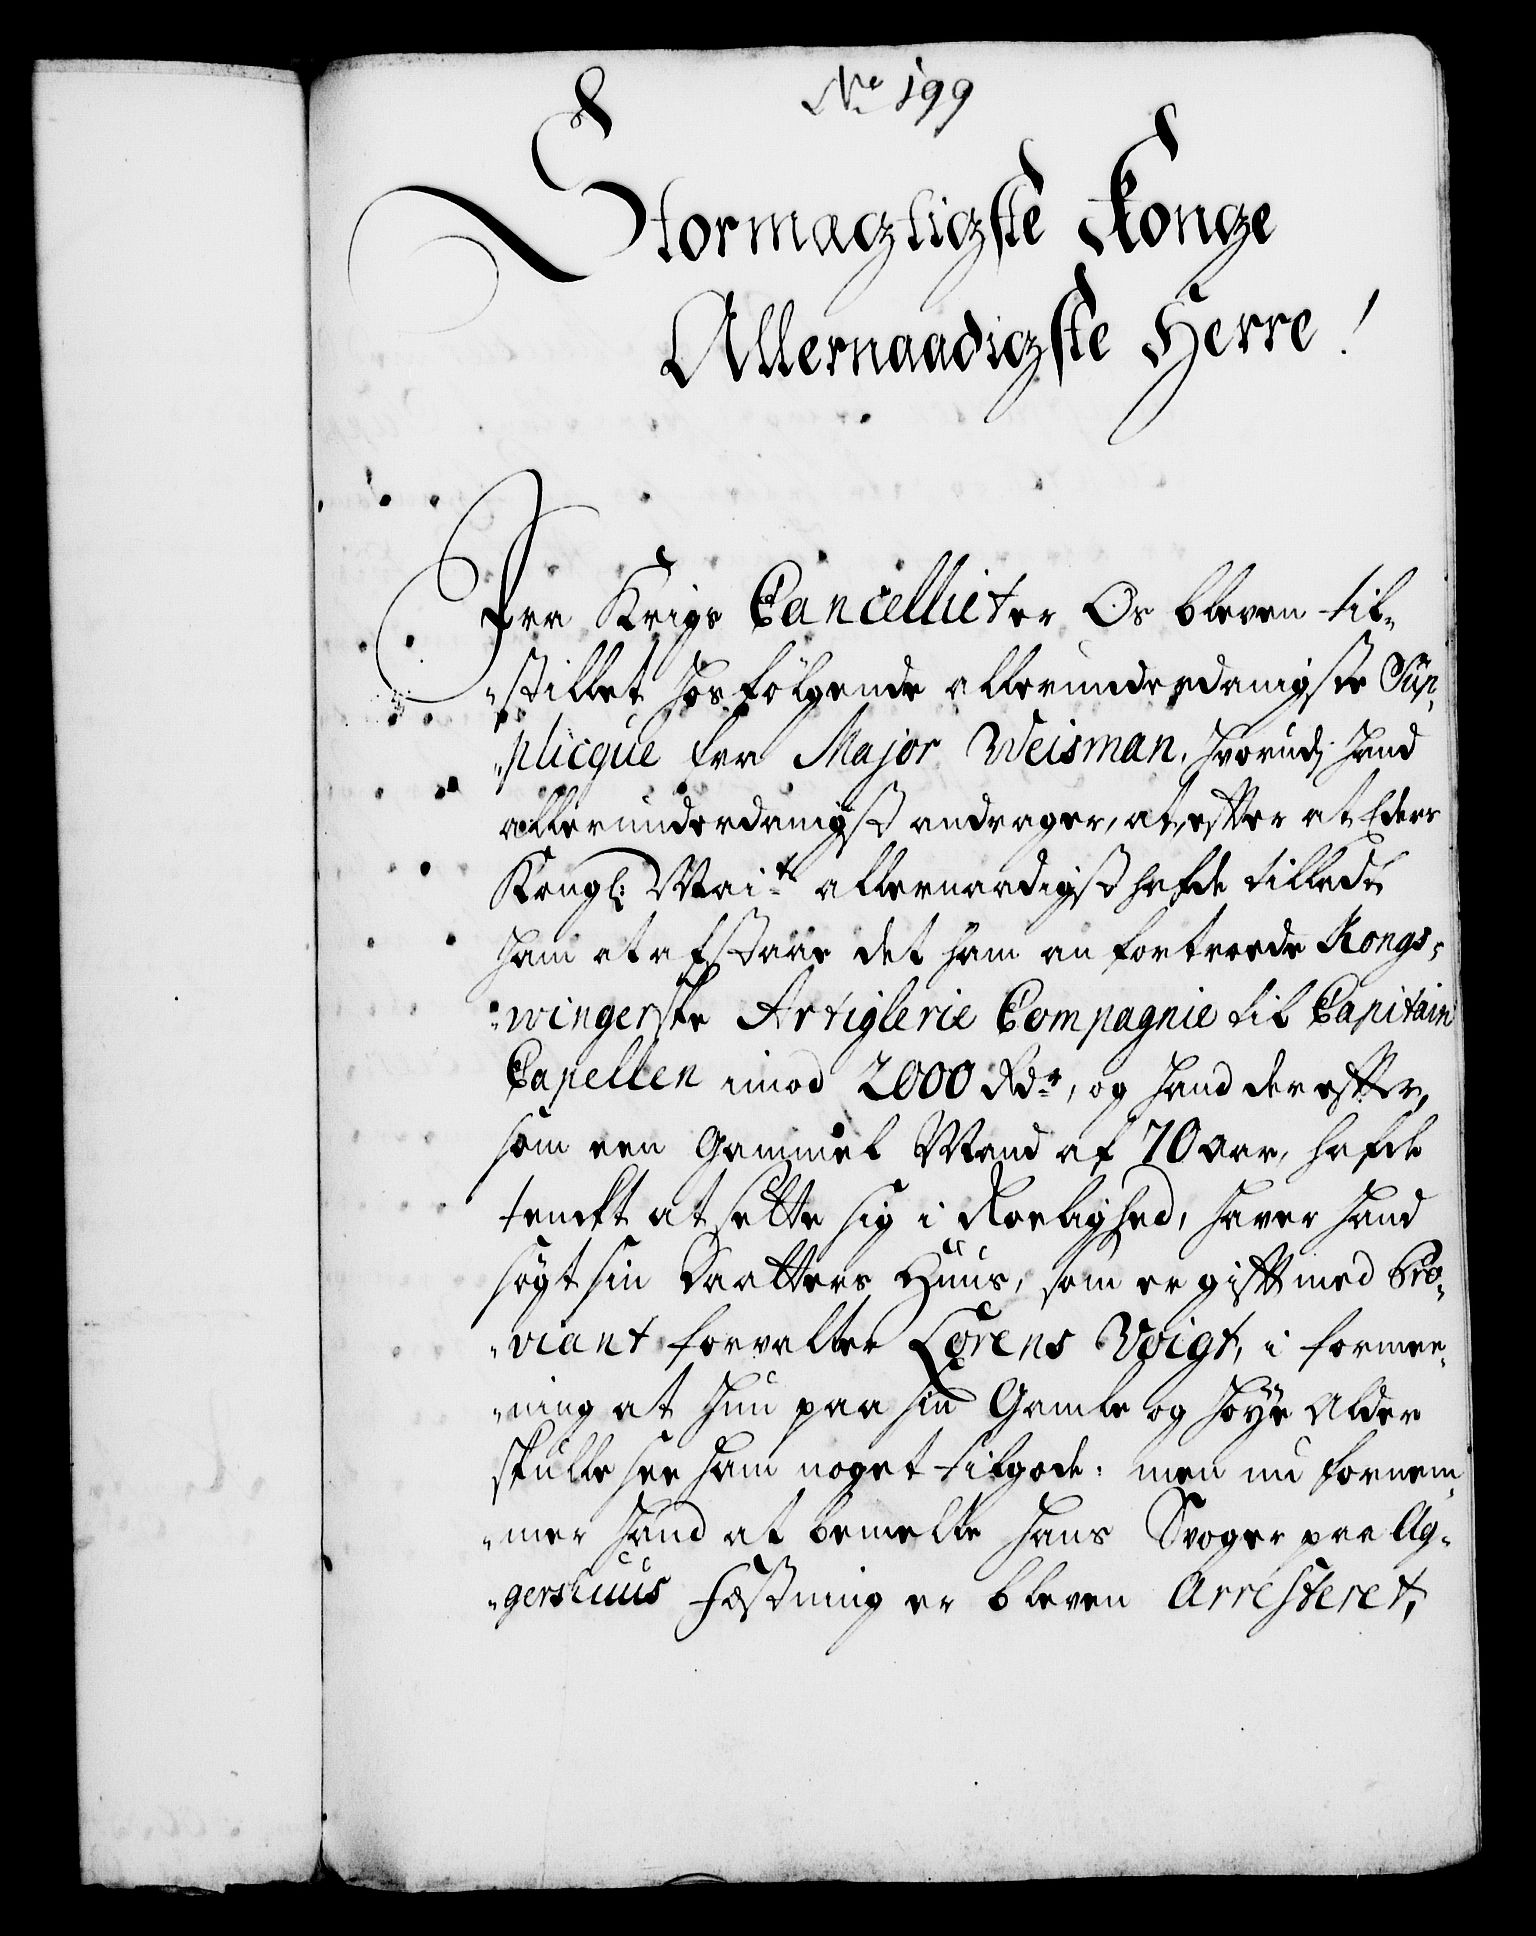 No 199
Stormægtigste Konge
Allernaadigste Herre!
Fra Krigs Cancelliet er Os bleven til-
-stillet hosfølgende allerunderdanigste Sup-
-plicque fra Major Weisman, hvorudj hand
allerunderdanigst andrager, at, efter at Eders
Kongl: Mai:ts allernaadigst hafde tilladt
ham at afstaae det ham anfortroede Kongs-
-wingerske Artiglerie Compagnie til Capitain
Capellen imod 2000 Rdr, og hand derefter,
som een Gammel Mand af 70 aar, hafde
tenckt at sette sig i Roelighed, haver hand
søgt sin Daatters Huus, som er gift med Pro-
-viant forvalter Lorens Voigt, i formee-
-ning at hun paa sin Gamle og høye Alder
skulle see ham noget tilgode: men nu fornem-
-mer hand at bemelte hans Svoger paa Ag-
-gershuus Fæstning er bleven Arresteret,